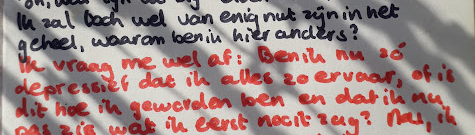 Ik zal toch wel van enig nut zijn in het
geheel, waarom ben ik hier anders?
Ik vraag me wel af: Ben ik nu zó
depressief dat ik alles zo ervaar, of is
dit hoe ik geworden ben en dat ik nu
pas zie wat ik eerst nooit zag? Nas, ik